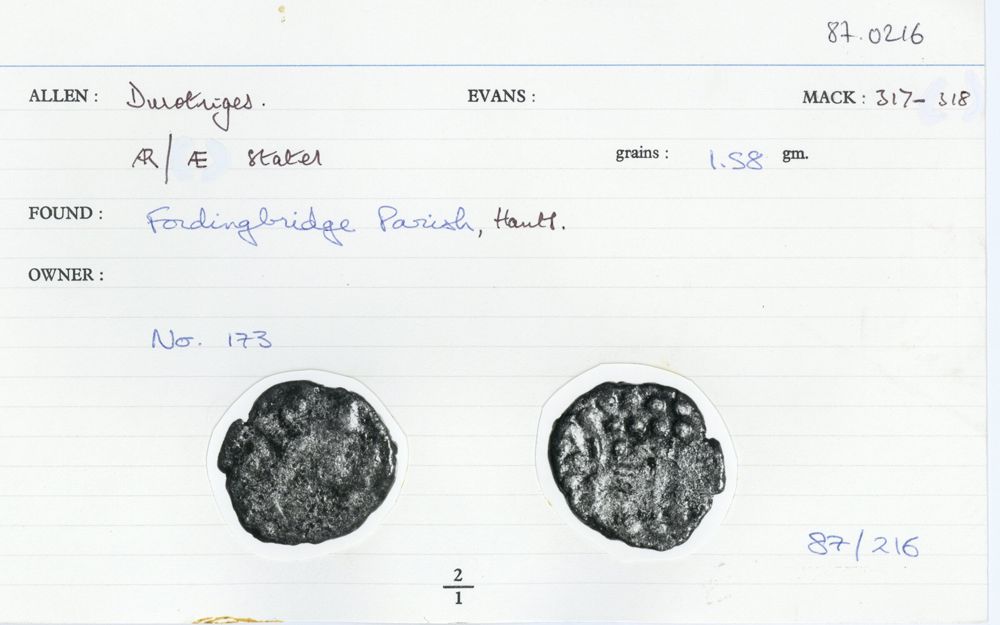 87.0216
ALLEN : Durotriges. EVANS : MACK : 317-318
ÆR/Æ stater grains : 1.58 gm.
FOUND : Fordingbridge Parish, Hants.
OWNER :
No. 173
87/216
2
1